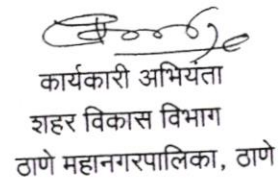 कार्यकारी अभियंता
शहर विकास विभाग
ठाणे महानगरपालिका, ठाणे